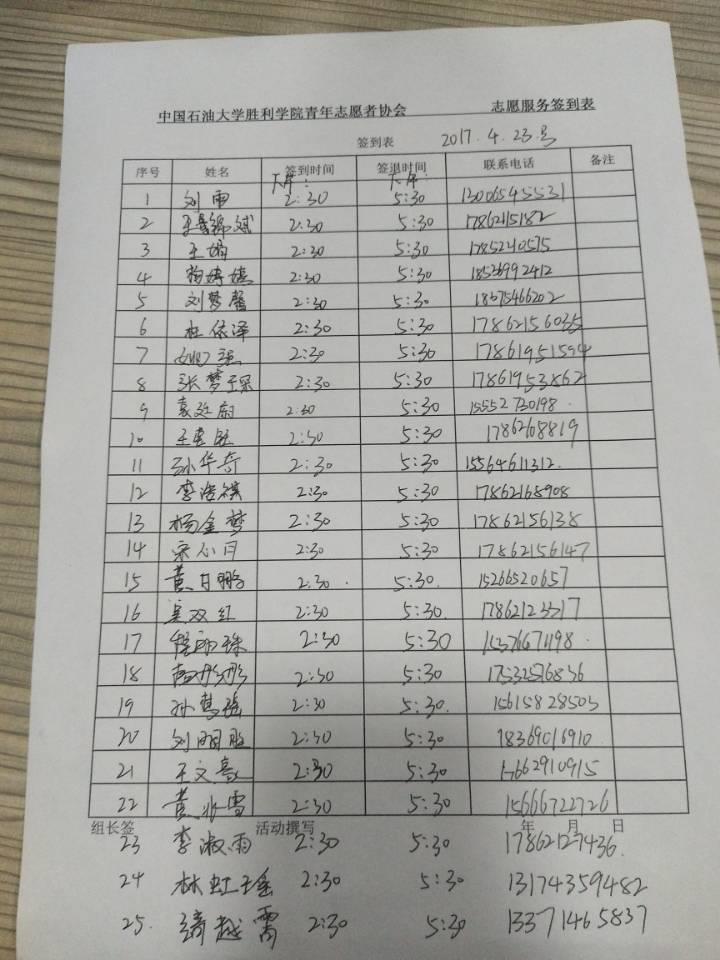 中国石油大学胜利学院青年志愿者协会 志愿服务签到表
签到表 2017.4.23号
序号 姓名 签到时间 签退时间 联系电话 备注
下午: 下午:
1 刘雨 2:30 5:30 13006545531
2 2:30 5:30 1786215182
3 王娟 2:30 5:30 1785240575
4 2:30 5:30 18539992412
5 刘梦馨 2:30 5:30 18675466202
6 杜依泽 2:30 5:30 17862156035
7 姚强 2:30 5:30 17861951594
8 张梦琛 2:30 5:30 17861953862
9 袁廷尉 2:30 5:30 15552730198
10 2:30 5:30 1786268819
11 孙华奇 2:30 5:30 15564611312.
12 李浩祺 2:30 5:30 17862168908
13 杨金梦 2:30 5:30 17862156138
14 宋心月 2:30 5:30 17862156147
15 黄月鹏 2:30. 5:30. 15266520657
16 吴双红 2:30 5:30 17862123717
17 2:30 5:30 15376671198.
18 2:30 5:30 17532576836
19 孙慧瑶 2:30 5:30. 15615828503
20 刘明胜 2:30 5:30 18369016910
21 王文豪 2:30 5:30 17662910915
22 黄兆雪 2:30 5:30 15666722726
组长签 活动撰写 年 月 日
23 李淑雨 2:30 5:30 17862127436.
24 林虹瑶 2:30 5:30 13174359482
25. 2:30 5:30 13371465837